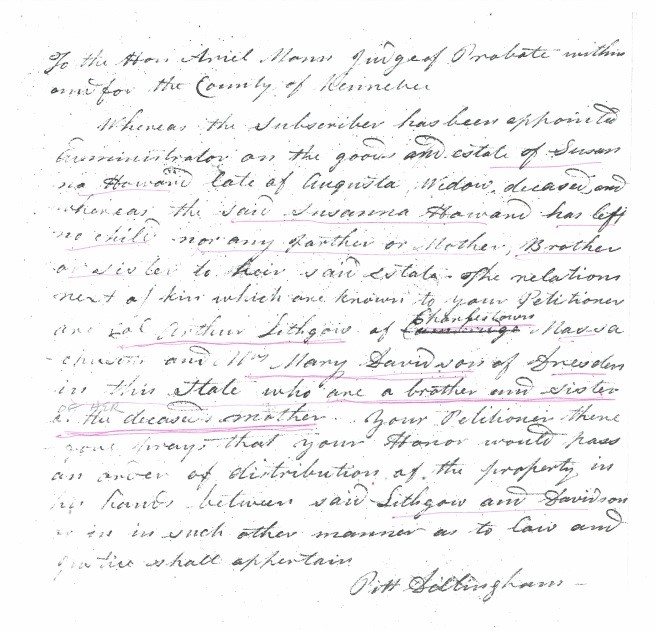 To the Hon Ariel Mann Judge of Probate within
and for the County of Kennebec
Whereas the Subscriber has been appointed
administrator on the goods and estate of Susan
na Howard late of Augusta Widow, deceased, and
whereas the said Susanna Howard has left
no child nor any farther or Mother, Brother
or sister to heir said Estate. The relations
next of kin which are known to your Petitioner
are Col Arthur Lithgow of Cambridge Charlestown Massa
chusetts and Mrs Mary Davidson of Dresden
in this State who are a brother and sister
OF HER
to the deceased's mother. Your Petitioner there
fore prays that your Honor would pass
an order of distribution of the property in
his hands between said Lithgow and Davidson
or in such other manner as to law and
justice shall appertain
Pitt Dillingham